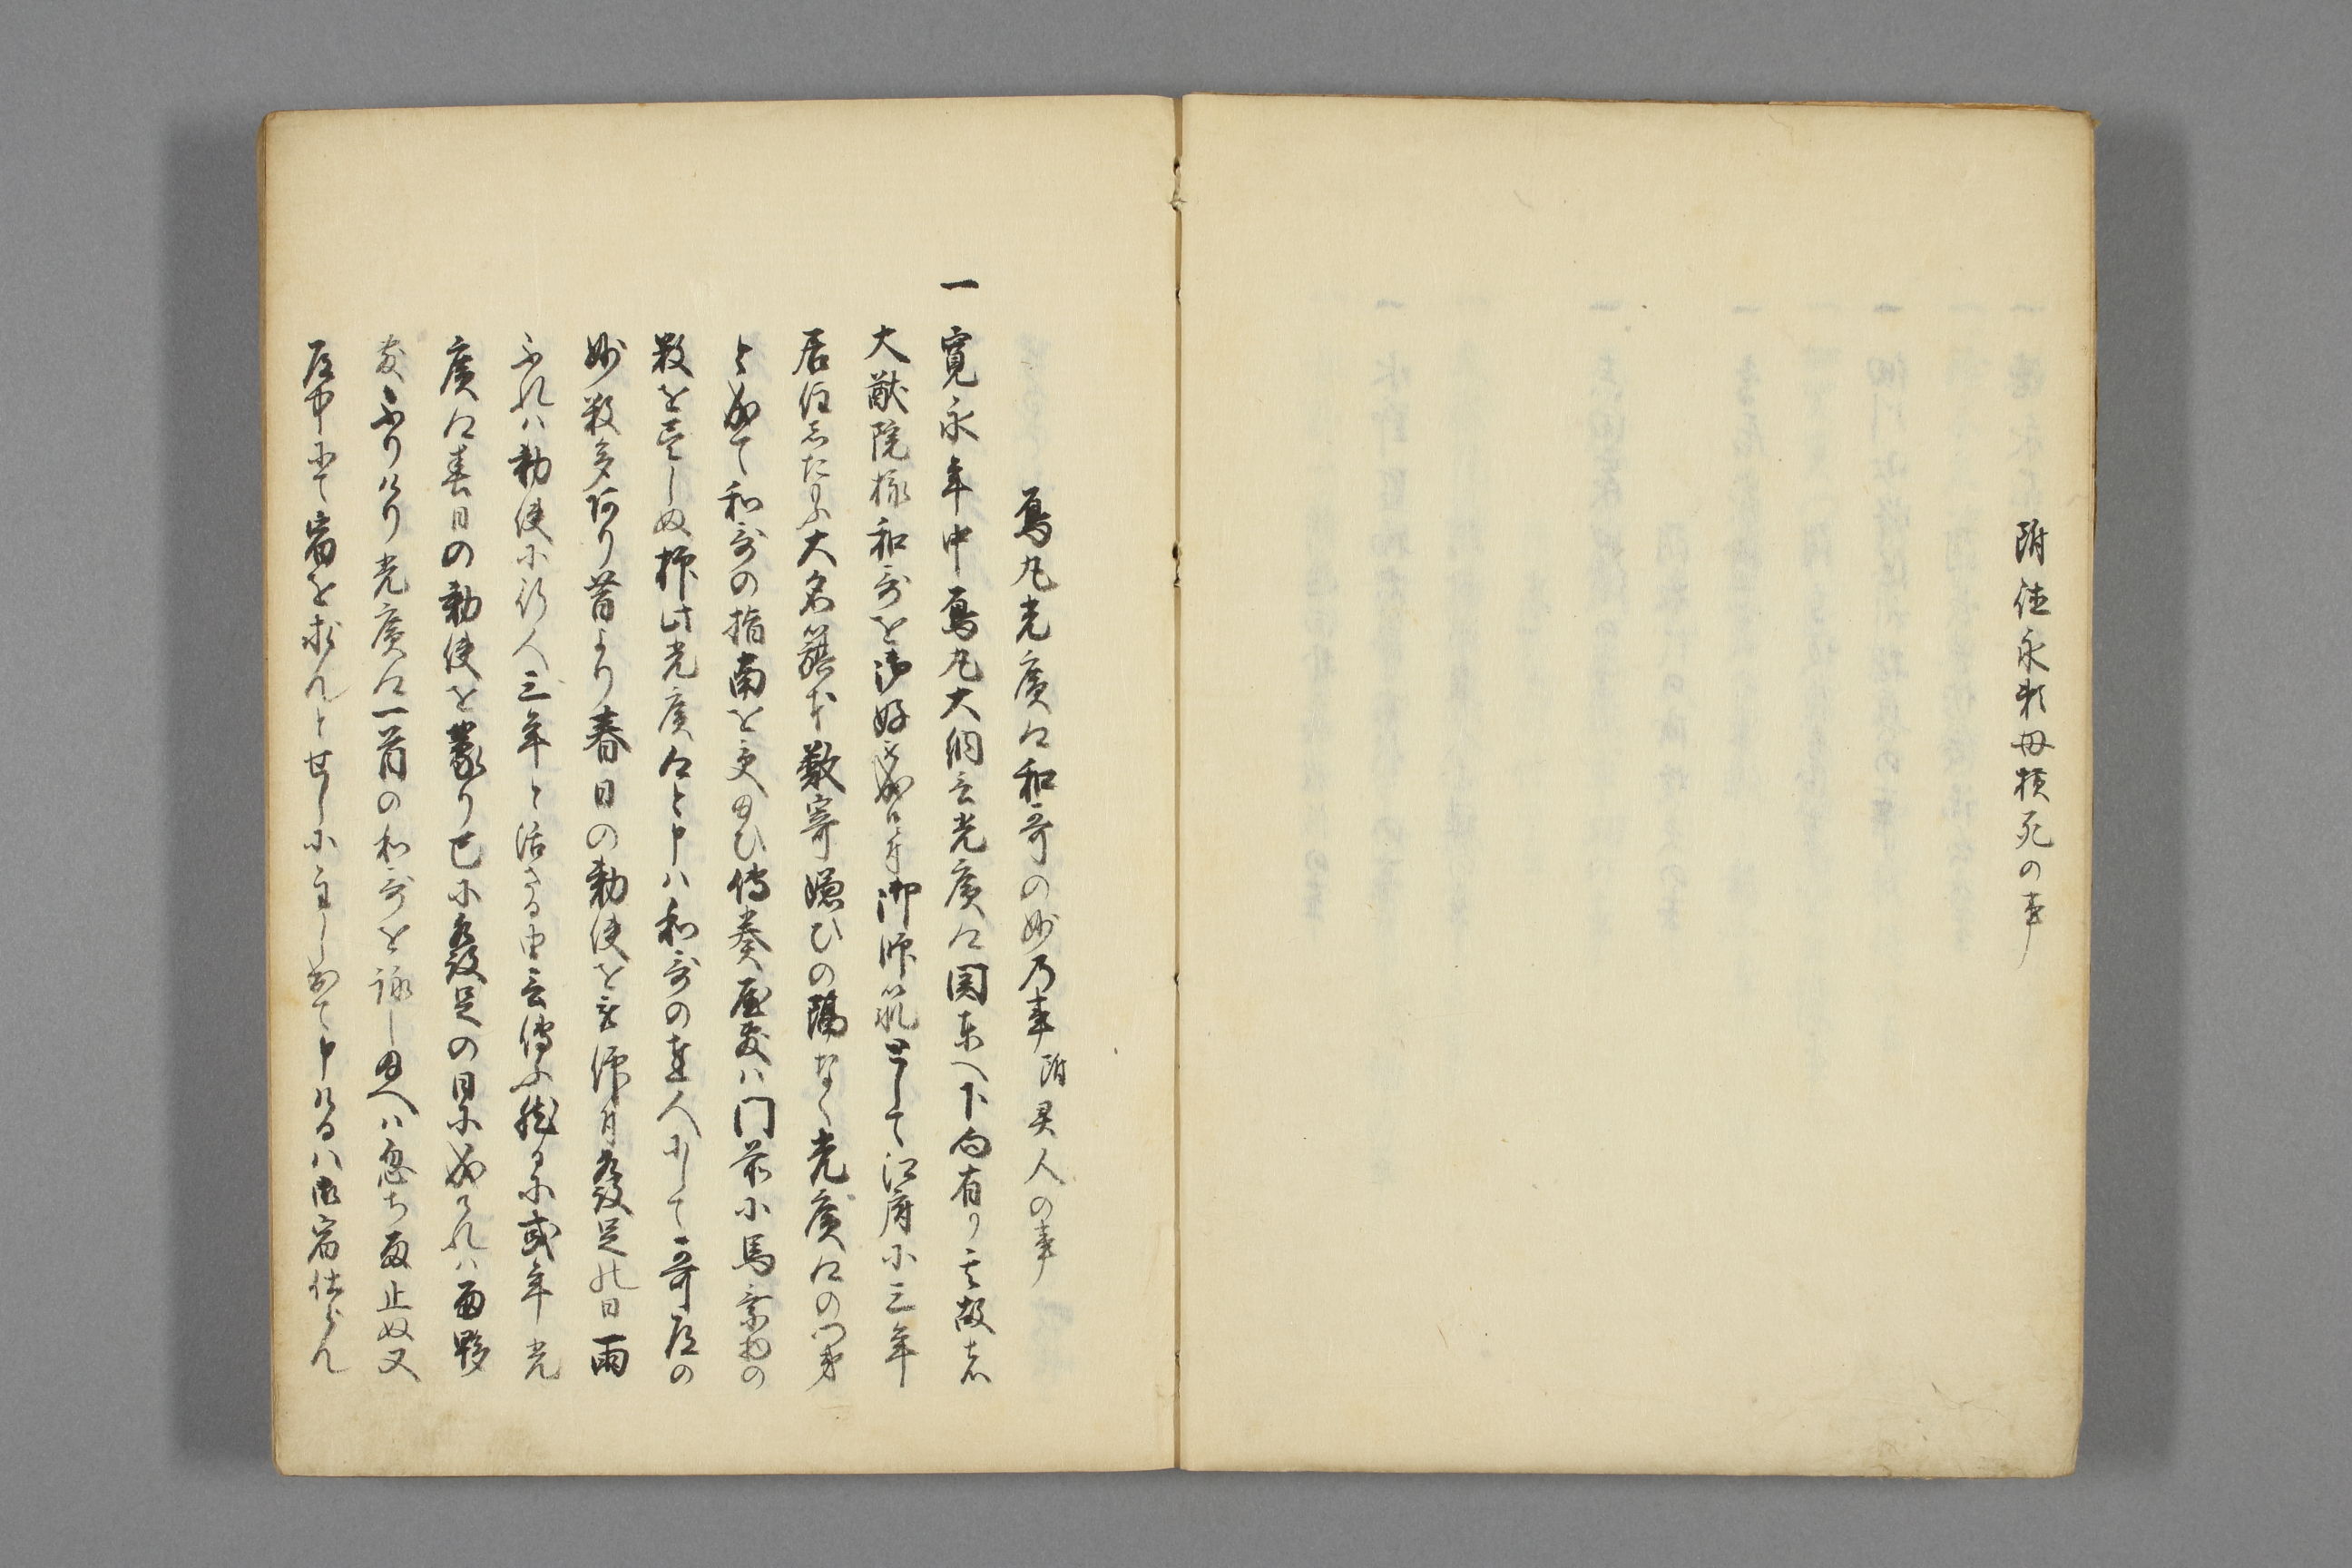 附徳永駒母横死の事
烏丸光廣卿和哥の妙乃事附異人の事
一寛永年中烏丸大納言光廣卿関東へ下向有り其故は
大猷院様和哥を御好被成候付御師範として江府に三年
居住したまふ大名籏本数寄嫌ひの隔なく光廣卿の門弟
と成て和哥の指南を受ゆひ傳奏屋敷ハ門前に馬乗物の
数を尽しぬ抑此光廣卿と申ハ和哥の達人にして哥道の
妙数多阿り昔より春日の勅使を蒙御方發足の日雨
ふれハ勅使に行人三年と活さる由言傳ふ然るに或年光
廣卿春日の勅使を蒙り已に發足の日に成けれハ雨夥
敷ふりけり光廣卿一首の和哥を詠し給へハ忽ち雨止ぬ又
道中にて宿を求んとせしに主し出て申けるハ御宿仕らん